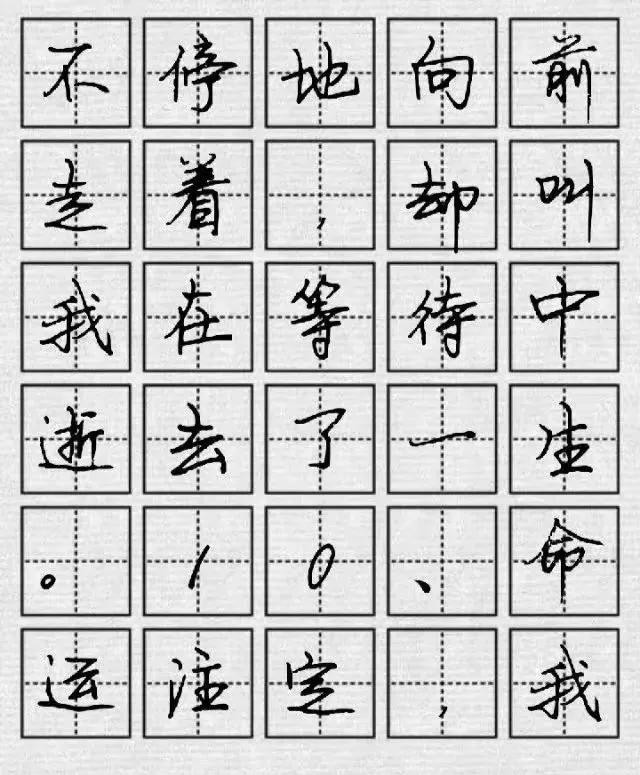 不停地向前
走着，却叫
我在等待中
逝去了一生
。10、命
运注定，我